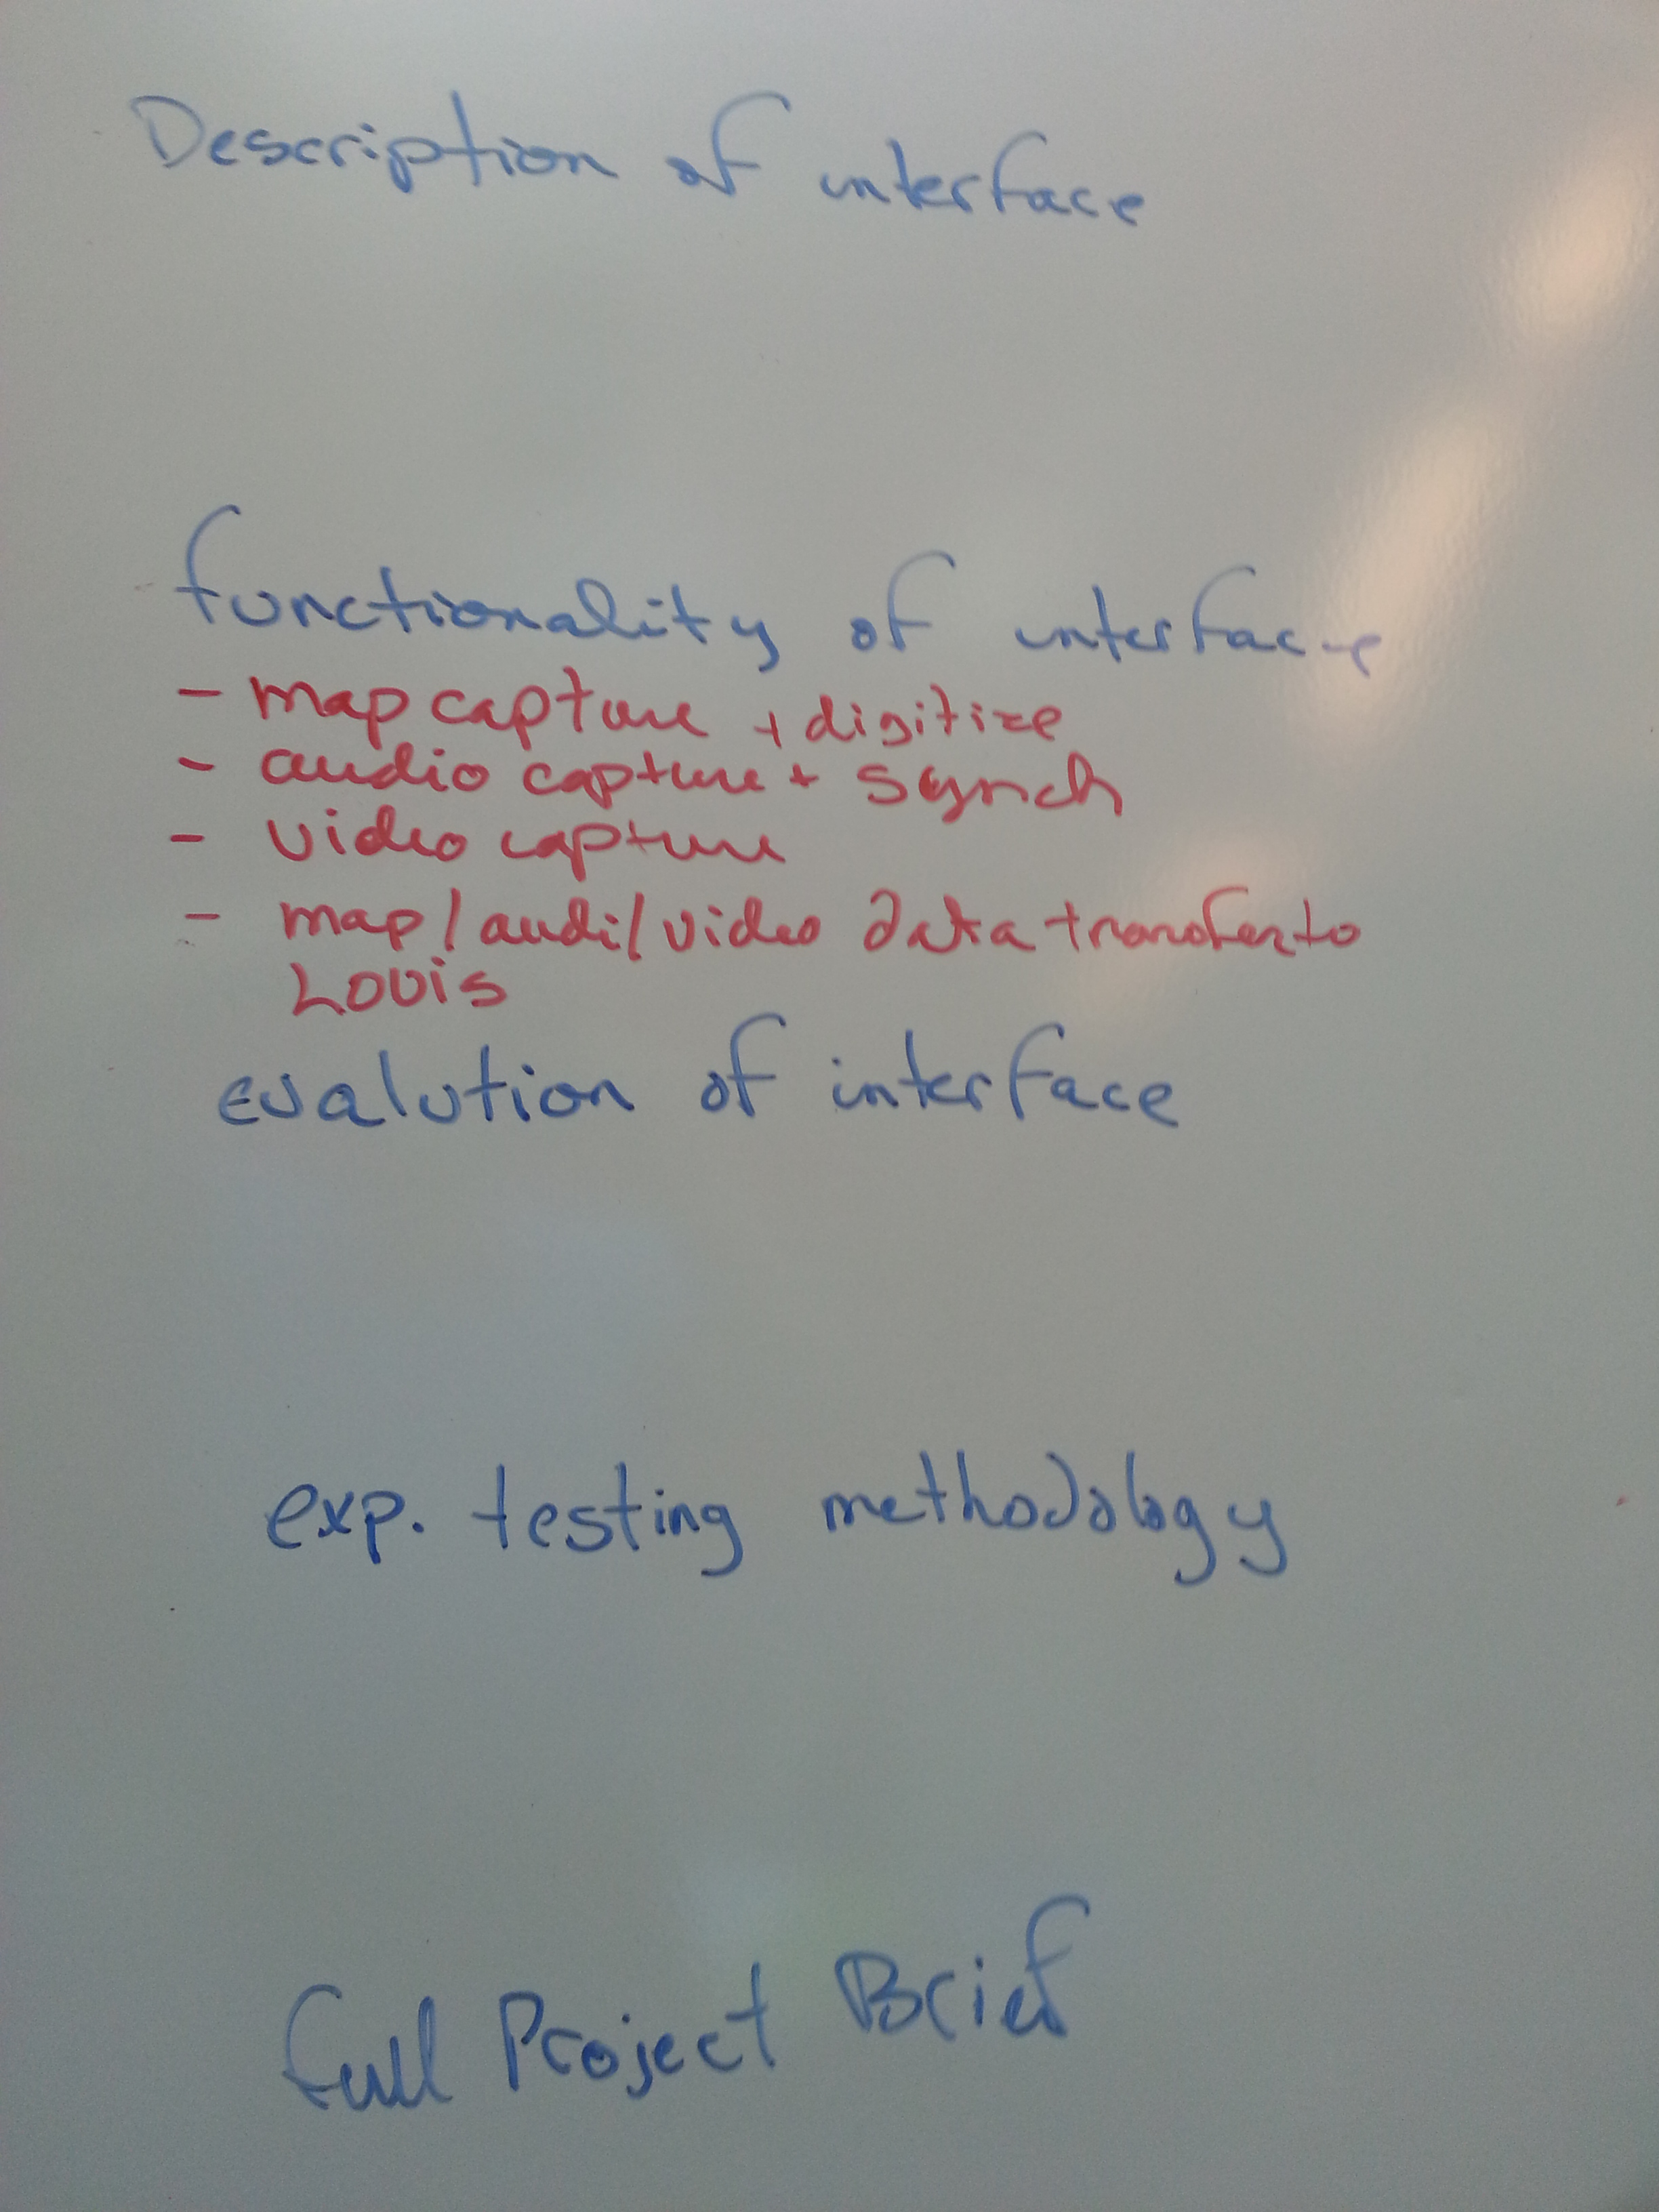 Description of interface
functionality of interface
- map capture + digitize
- audio capture + synch
- video capture
- map/audi/video data transfer to
Louis
evalution of interface
exp. testing methodology
full Project Brief